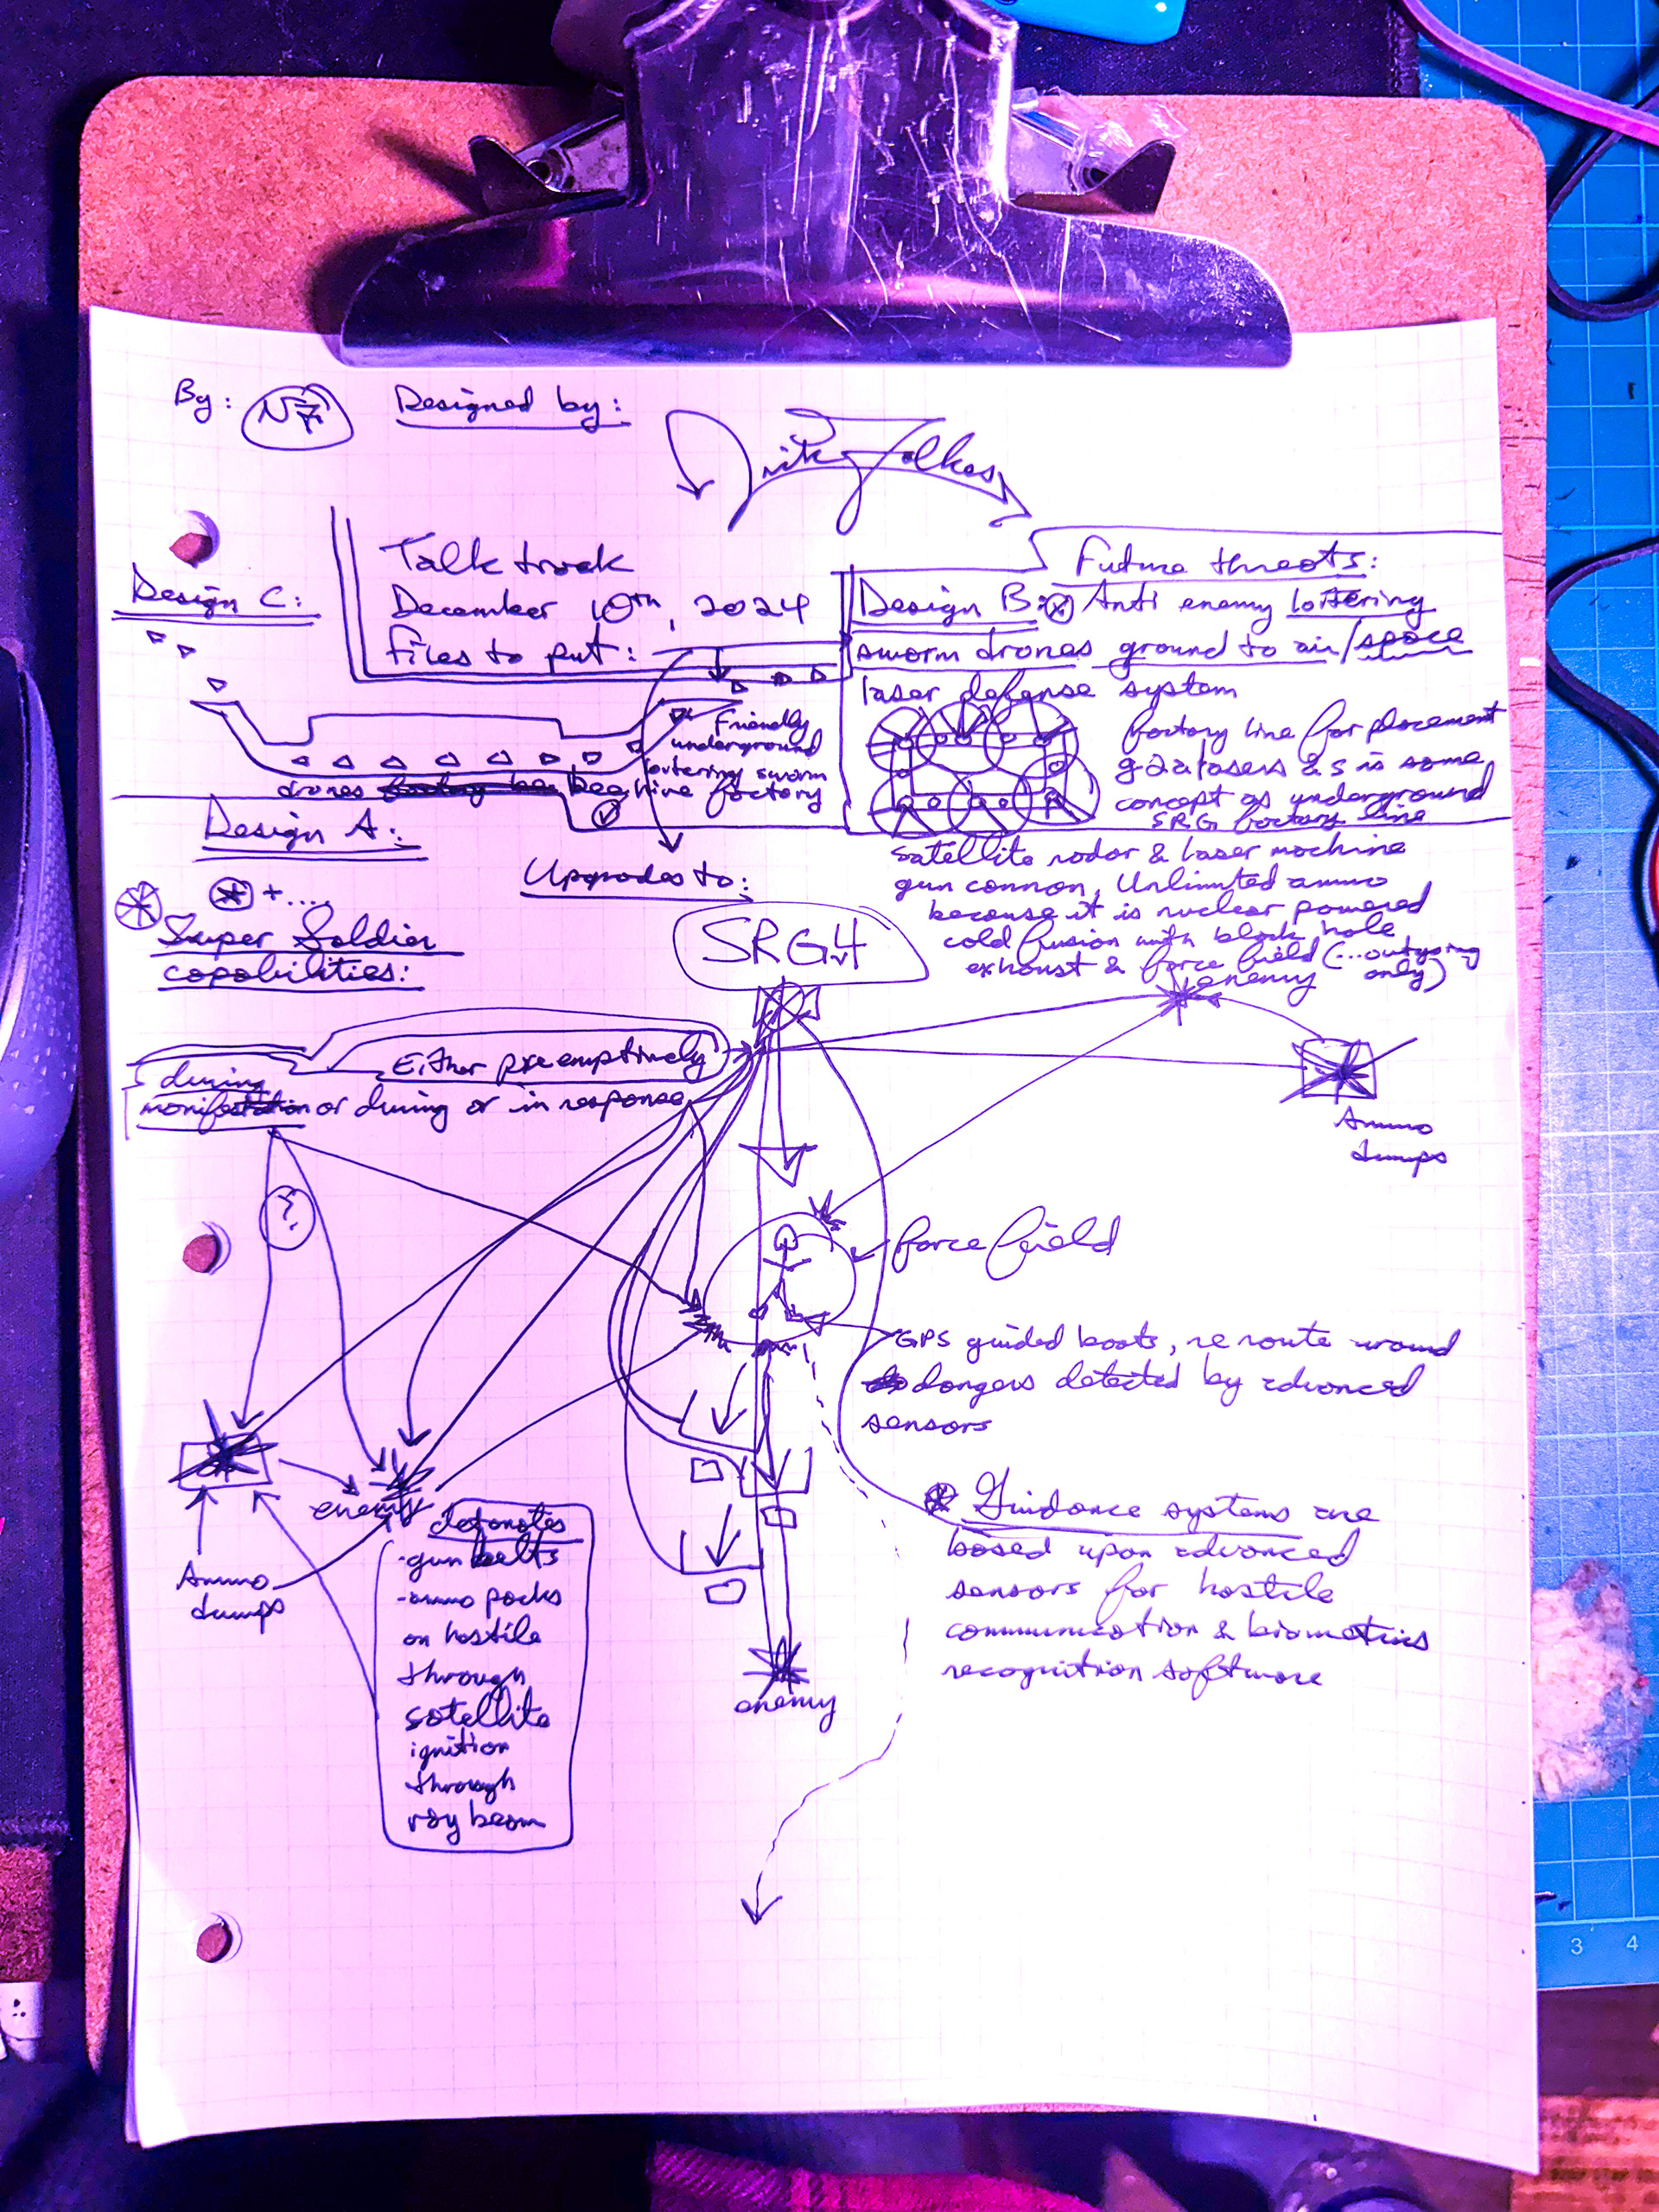 By: NF Designed by:
Talk track
December 10th, 2024
files to put:
Future threats:
Design B: Anti enemy loitering
swarm drones ground to air/space
laser defense system
factory line for placement
concept as underground
SRG factory line
satellite radar & laser machine
gun cannon, Unlimited ammo
because it is nuclear powered
cold fusion with black hole
exhaust & force field (...outgoing
only)
Design C:
Friendly
underground
loitering swarm
drones beehive factory
Design A:
+....
Super Soldier
capabilities:
Upgrades to:
SRGv4
Either preemptively
during
manifestation or during or in response
enemy
Ammo
dumps
?
force field
GPS guided boots, re route around
dangers detected by advanced
sensors
Guidance systems are
based upon advanced
sensors for hostile
communication & biometrics
recognition software
enemy
Ammo
dumps
detonates
-gun belts
-ammo packs
on hostile
through
satellite
ignition
through
ray beam
enemy
3 4